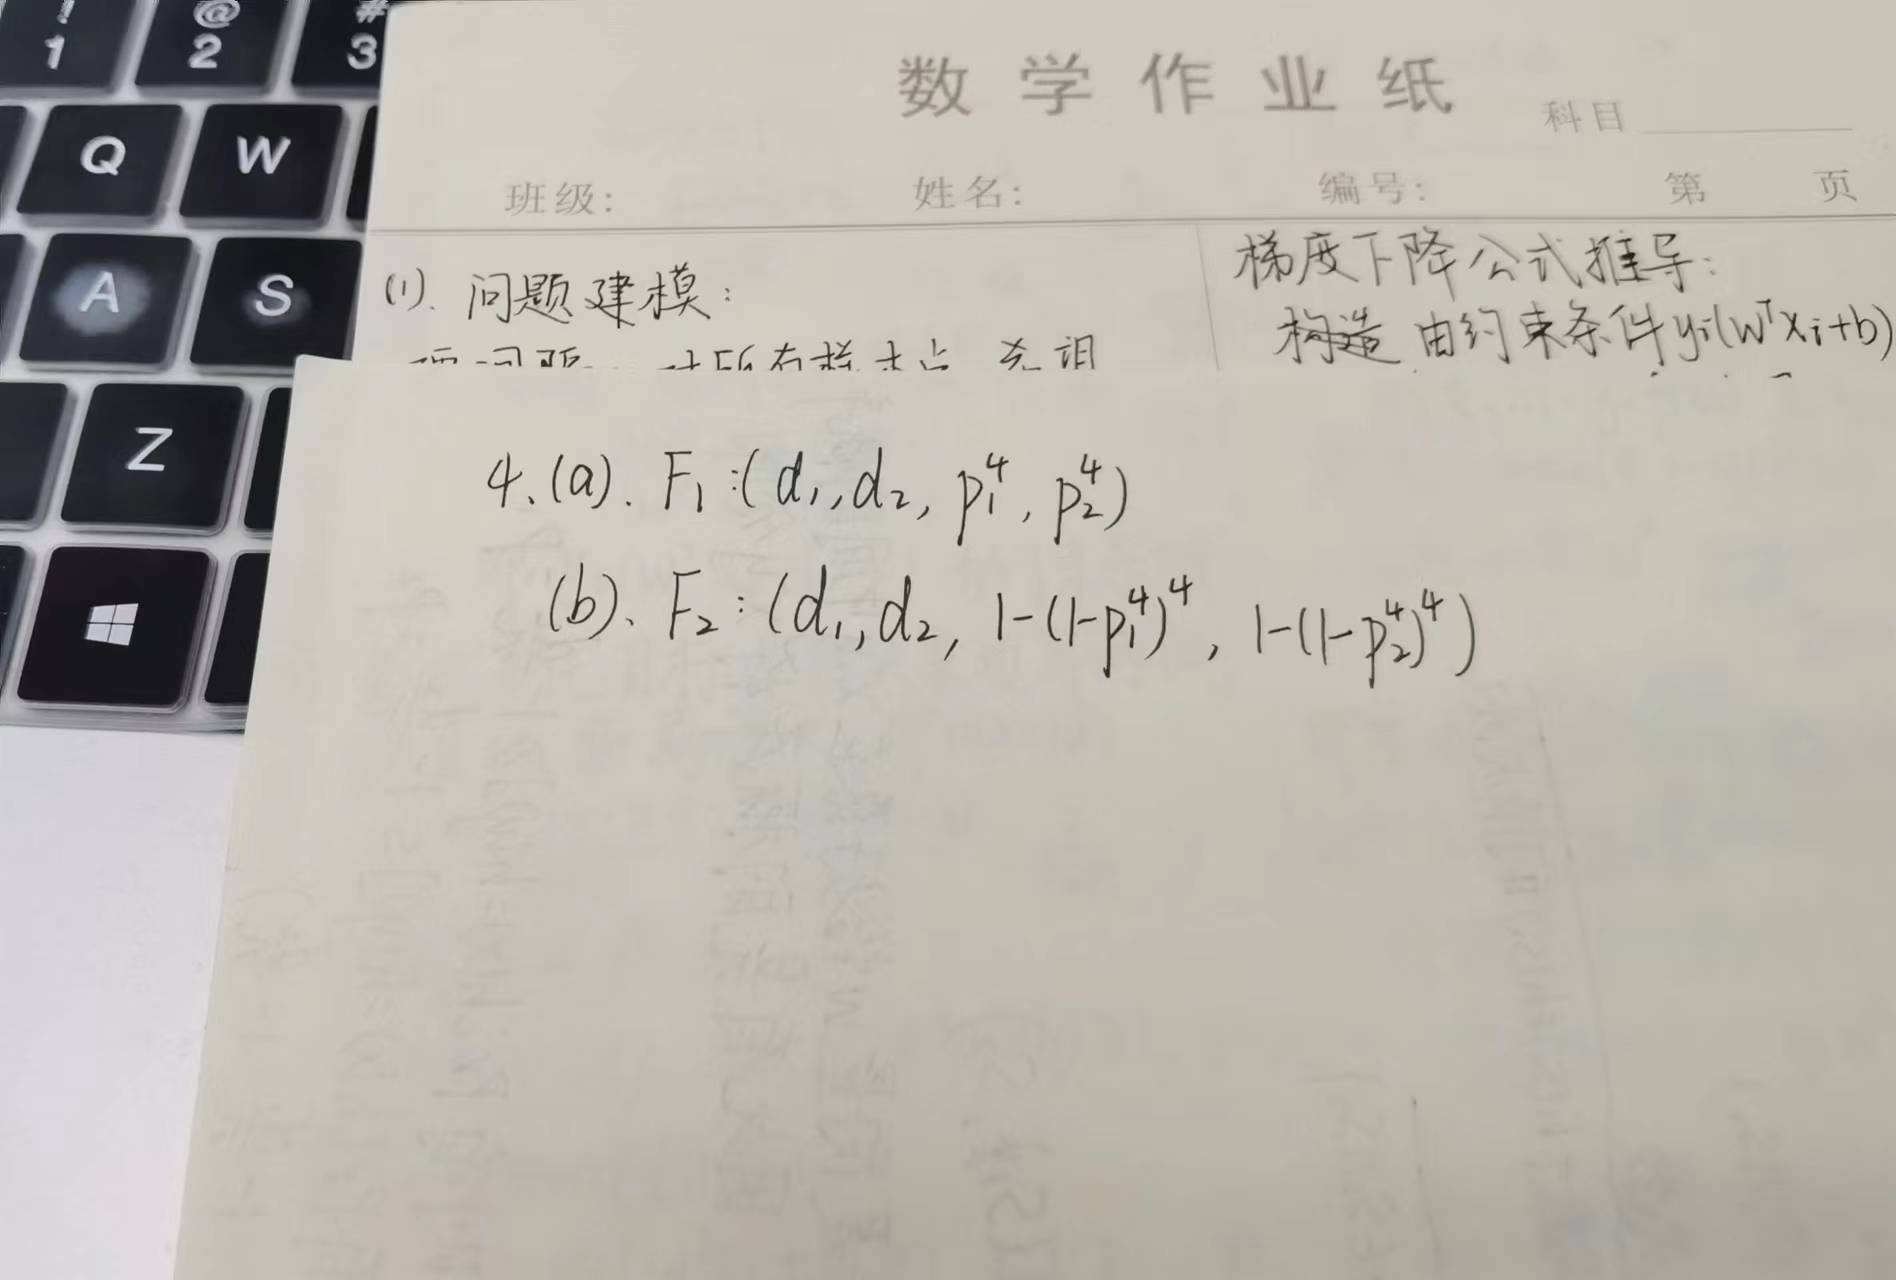 ! @ #
1 2 3
Q W
A S
Z
数学作业纸
科目
班级: 姓名: 编号: 第 页
(1). 问题建模:
梯度下降公式推导:
构造 由约束条件yi(wᵀxi+b)
对所有样本点
4.(a). F₁:(d₁,d₂,p₁⁴,p₂⁴)
(b). F₂:(d₁,d₂, 1-(1-p₁⁴)⁴, 1-(1-p₂⁴)⁴)